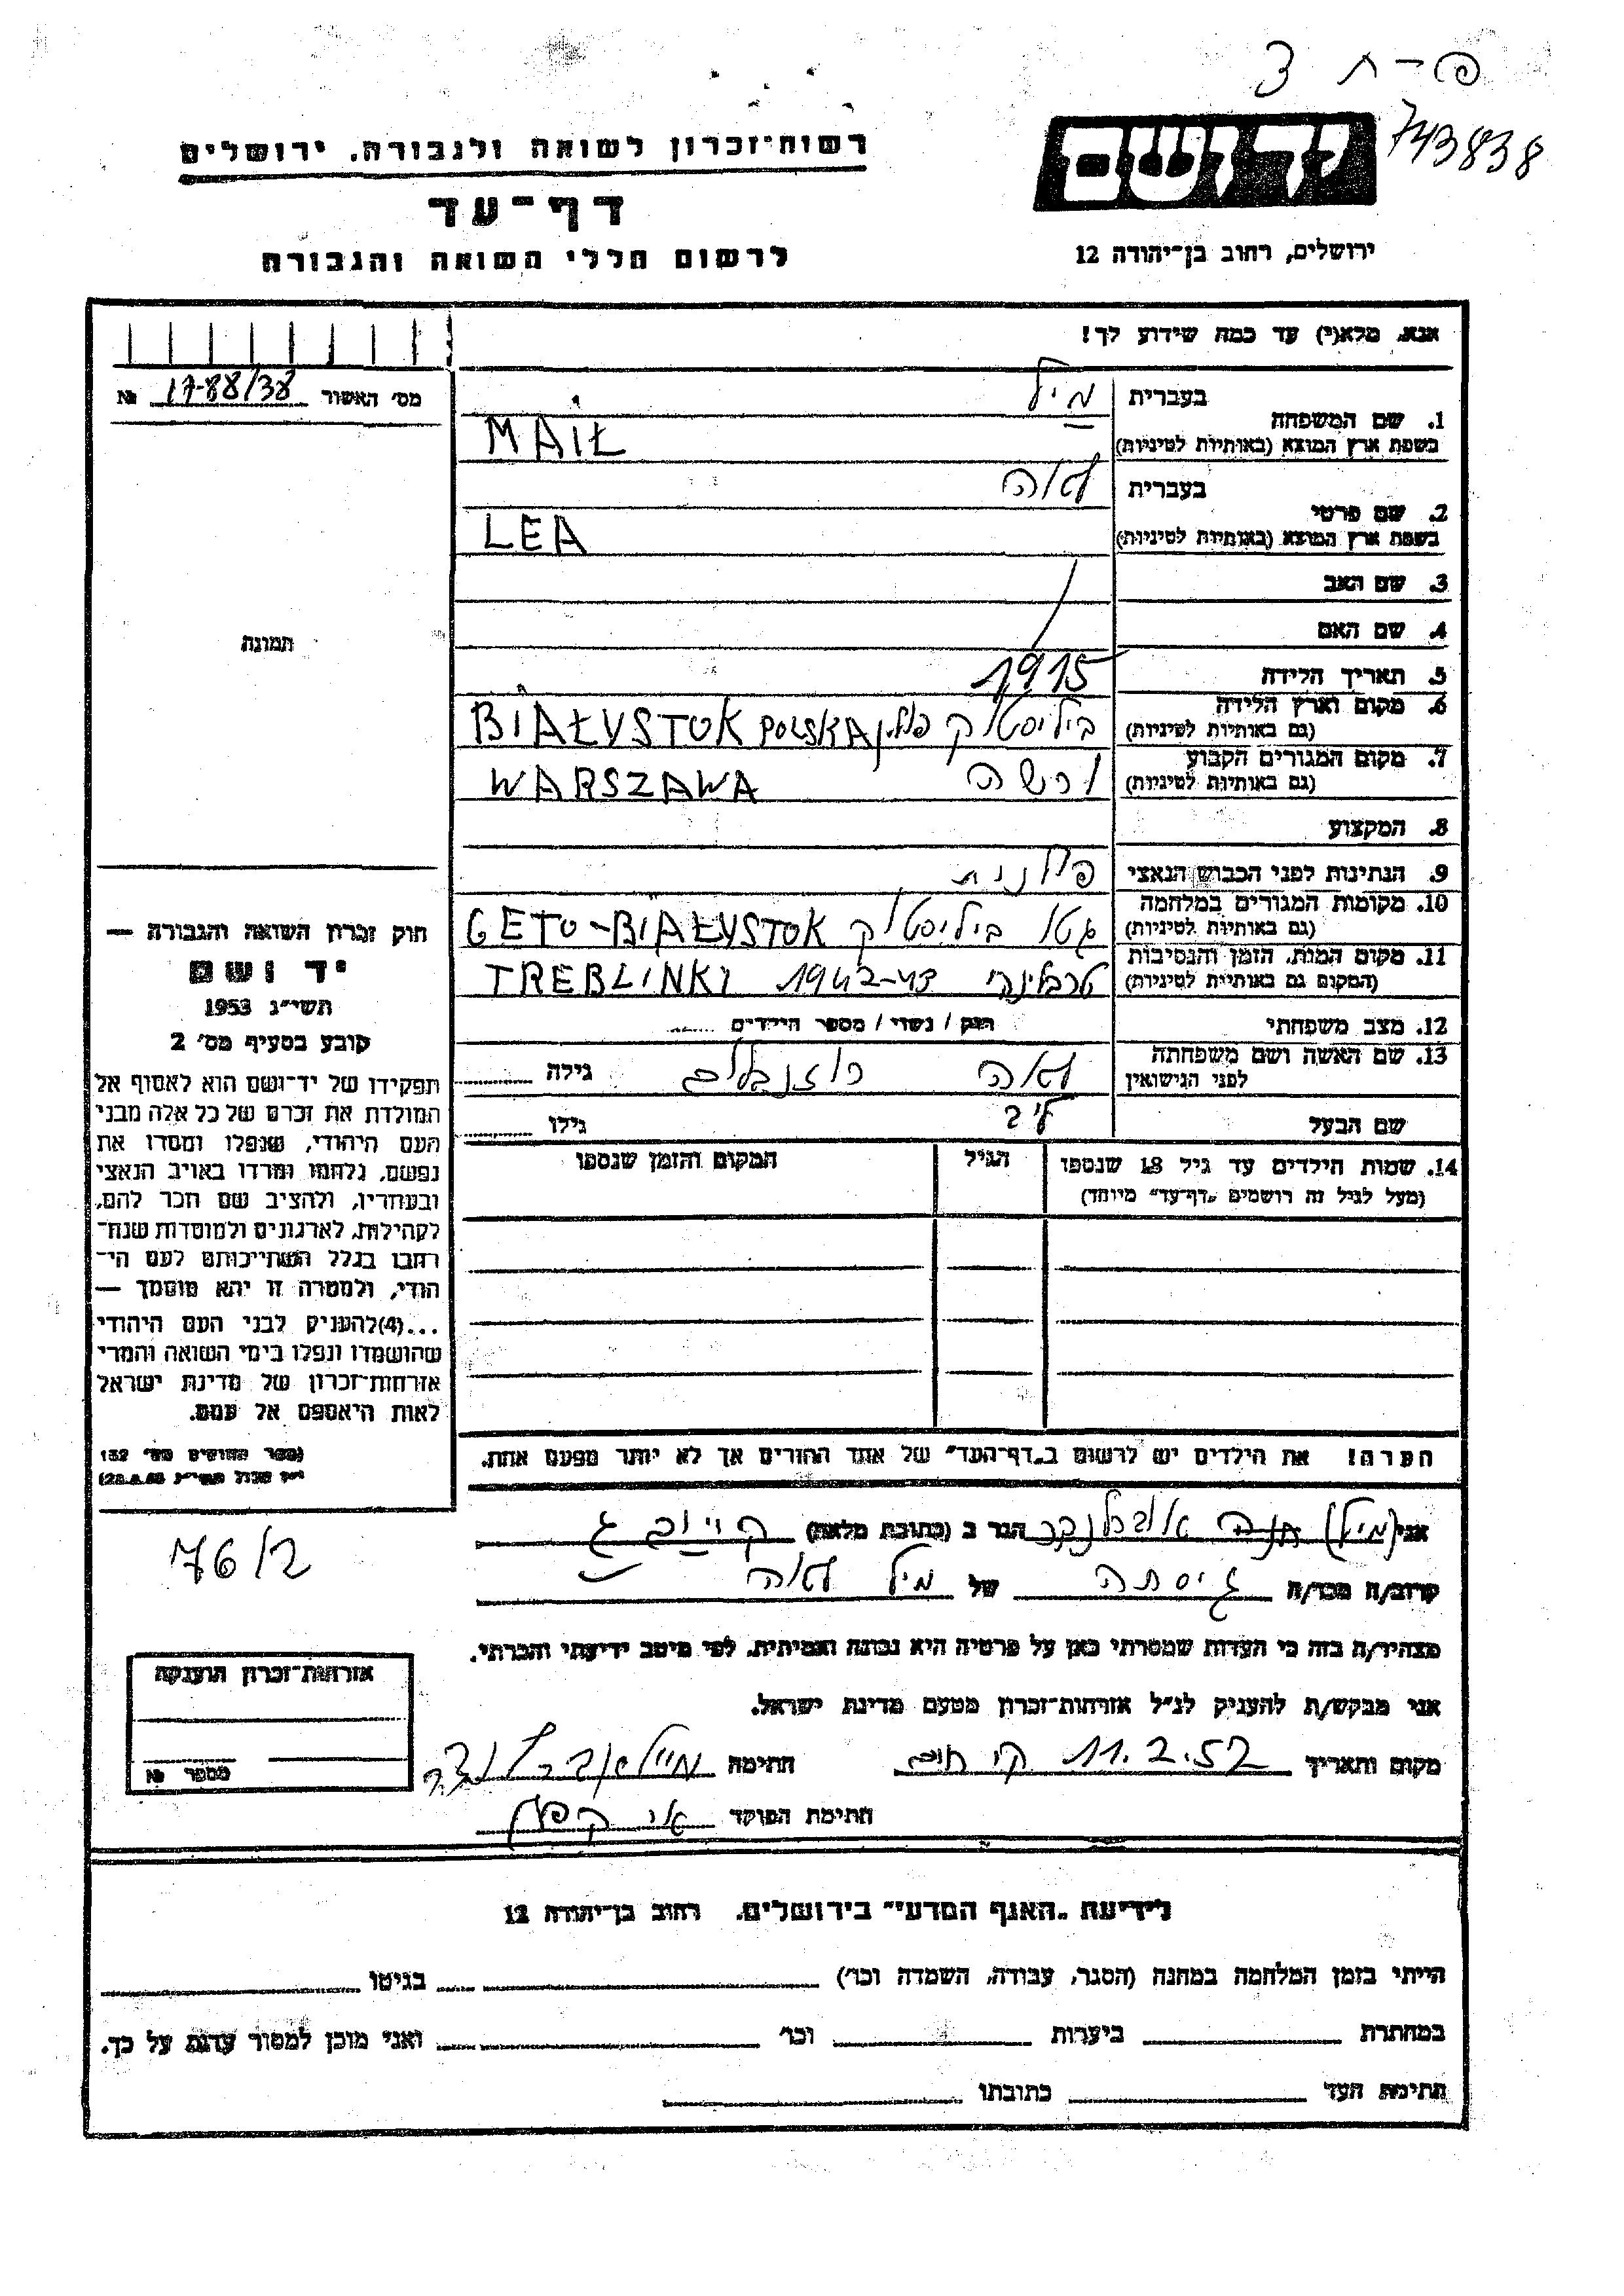 פ-ת 3
743838
יד ושם
ירושלים, רחוב בן-יהודה 12
רשות-זכרון לשואה ולגבורה, ירושלים
דף-עד
לרשום חללי השואה והגבורה
אנא, מלא(י) עד כמה שידוע לך!
מס' האשור 17-88/38 №
בעברית מיל
1. שם המשפחה
בשפת ארץ המוצא (באותיות לטיניות) MAIŁ
בעברית לאה
2. שם פרטי
בשפת ארץ המוצא (באותיות לטיניות) LEA
3. שם האב
4. שם האם
5. תאריך הלידה 1915
6. מקום וארץ הלידה ביליסטוק פולין BIAŁYSTOK POLSKA
(גם באותיות לטיניות)
7. מקום המגורים הקבוע ורשה WARSZAWA
(גם באותיות לטיניות)
8. המקצוע
9. הנתינות לפני הכבוש הנאצי פולנית
10. מקומות המגורים במלחמה גטו ביליסטוק GETO-BIAŁYSTOK
(גם באותיות לטיניות)
11. מקום המות, הזמן והנסיבות טרבלינקי 1942-43 TREBLINKI
(המקום גם באותיות לטיניות)
12. מצב משפחתי רווק / נשוי / מספר הילדים
13. שם האשה ושם משפחתה לאה רוזנבלום גילה
לפני הנישואין
שם הבעל לייב גילו
14. שמות הילדים עד גיל 18 שנספו הגיל המקום והזמן שנספו
(מעל לגיל זה רושמים "דף-עד" מיוחד)
תמונה
חוק זכרון השואה והגבורה —
יד ושם
תשי"ג 1953
קובע בסעיף מס' 2
תפקידו של יד-ושם הוא לאסוף אל
המולדת את זכרם של כל אלה מבני
העם היהודי, שנפלו ומסרו את
נפשם, נלחמו ומרדו באויב הנאצי
ובעוזריו, ולהציב שם וזכר להם,
לקהילות, לארגונים ולמוסדות שנח-
רבו בגלל השתייכותם לעם הי-
הודי, ולמטרה זו יהא מוסמך —
...(4)להעניק לבני העם היהודי
שהושמדו ונפלו בימי השואה והמרי
אזרחות-זכרון של מדינת ישראל
לאות היאספם אל עמם.
(ספר החוקים מס' 132
הערה! את הילדים יש לרשום ב"דף-העד" של אחד ההורים אך לא יותר מפעם אחת.
אני (מיל) חנה הגר ב (כתובת מלאה)
קרוב/ה מכר/ה גיסתה של מיל לאה
76/2
מצהיר/ה בזה כי העדות שמסרתי כאן על פרטיה היא נכונה ואמיתית, לפי מיטב ידיעתי והכרתי.
אני מבקש/ת להעניק לנ"ל אזרחות-זכרון מטעם מדינת ישראל.
מקום ותאריך 11.2.57 חתימה
חתימת הפוקד
אזרחות-זכרון הוענקה
מספר №
לידיעת "האגף המדעי" בירושלים, רחוב בן-יהודה 12
הייתי בזמן המלחמה במחנה (הסגר, עבודה, השמדה וכו') בגיטו
במחתרת ביערות וכו' ואני מוכן למסור עדות על כך.
חתימת העד כתובתו